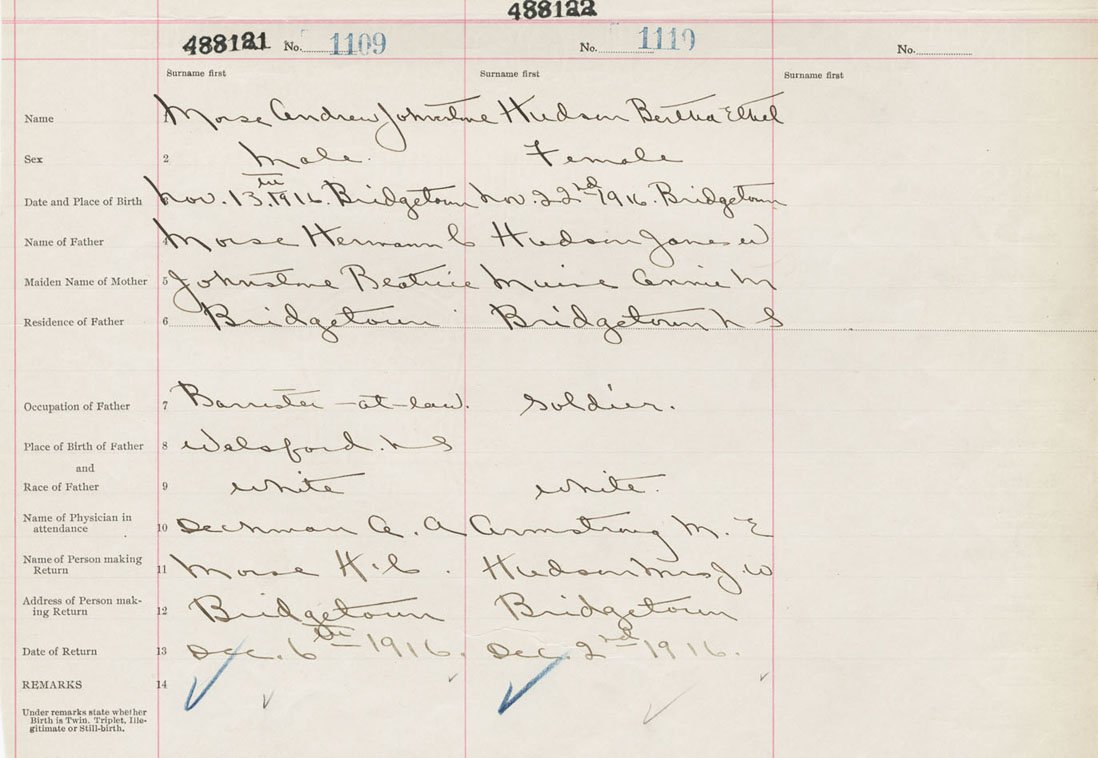 488122
488121 No. 1109 No. 1110 No.
Surname first Surname first Surname first
Name 1 Morse Andrew Johnstone Hudson Bertha Ethel
Sex 2 Male. Female
Date and Place of Birth Nov. 13th 1916. Bridgetown Nov. 22nd 1916. Bridgetown
Name of Father 4 Morse Hermann C Hudson James W
Maiden Name of Mother 5 Johnstone Beatrice Muise Annie M
Residence of Father 6 Bridgetown Bridgetown N S
Occupation of Father 7 Barrister-at-law. Soldier.
Place of Birth of Father 8 Welsford. N S
and
Race of Father 9 White White.
Name of Physician in
attendance 10 Dechman A. A Armstrong M. E
Name of Person making
Return 11 Morse H. C. Hudson Mrs J. W
Address of Person mak-
ing Return 12 Bridgetown Bridgetown
Date of Return 13 Dec. 6th 1916. Dec. 2nd 1916.
REMARKS 14
Under remarks state whether
Birth is Twin, Triplet, Ille-
gitimate or Still-birth.